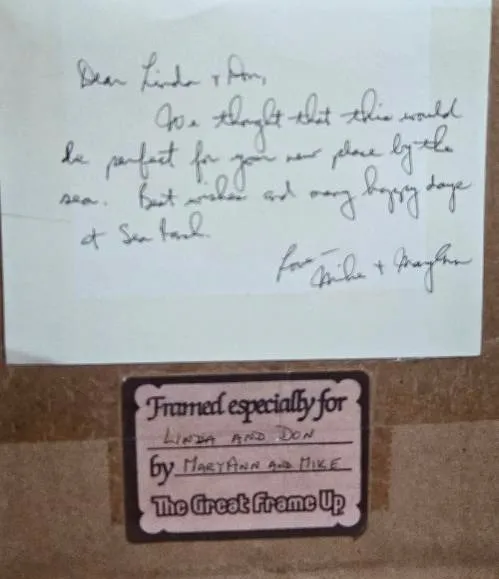 Dear Linda + Don,
We thought that this would
be perfect for your new place by the
sea. Best wishes and many happy days
at Sea Ranch.
Love –
Mike + MaryAnn
Framed especially for
LINDA AND DON
by MARYANN AND MIKE
The Great Frame Up